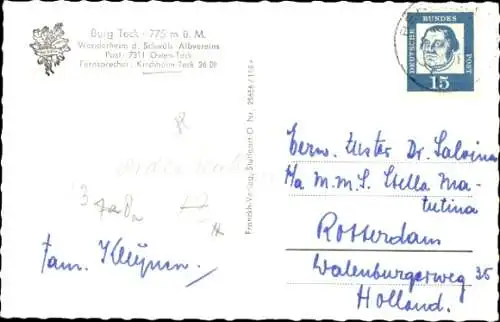 Burg Teck - 775 m ü. M.
Wanderheim d. Schwäb. Albvereins
Post: 7311 Owen-Teck
Fernsprecher: Kirchheim-Teck 26 01
DEUTSCHE BUNDESPOST
15
Franckh-Verlag, Stuttgart-O Nr. 25656 / 158
Eerw. Zuster Dr. Salvina
Ha M.M.S. Stella Ma-
tutina
Rotterdam
Walenburgerweg 35
Holland.
fam. Kleijnen.